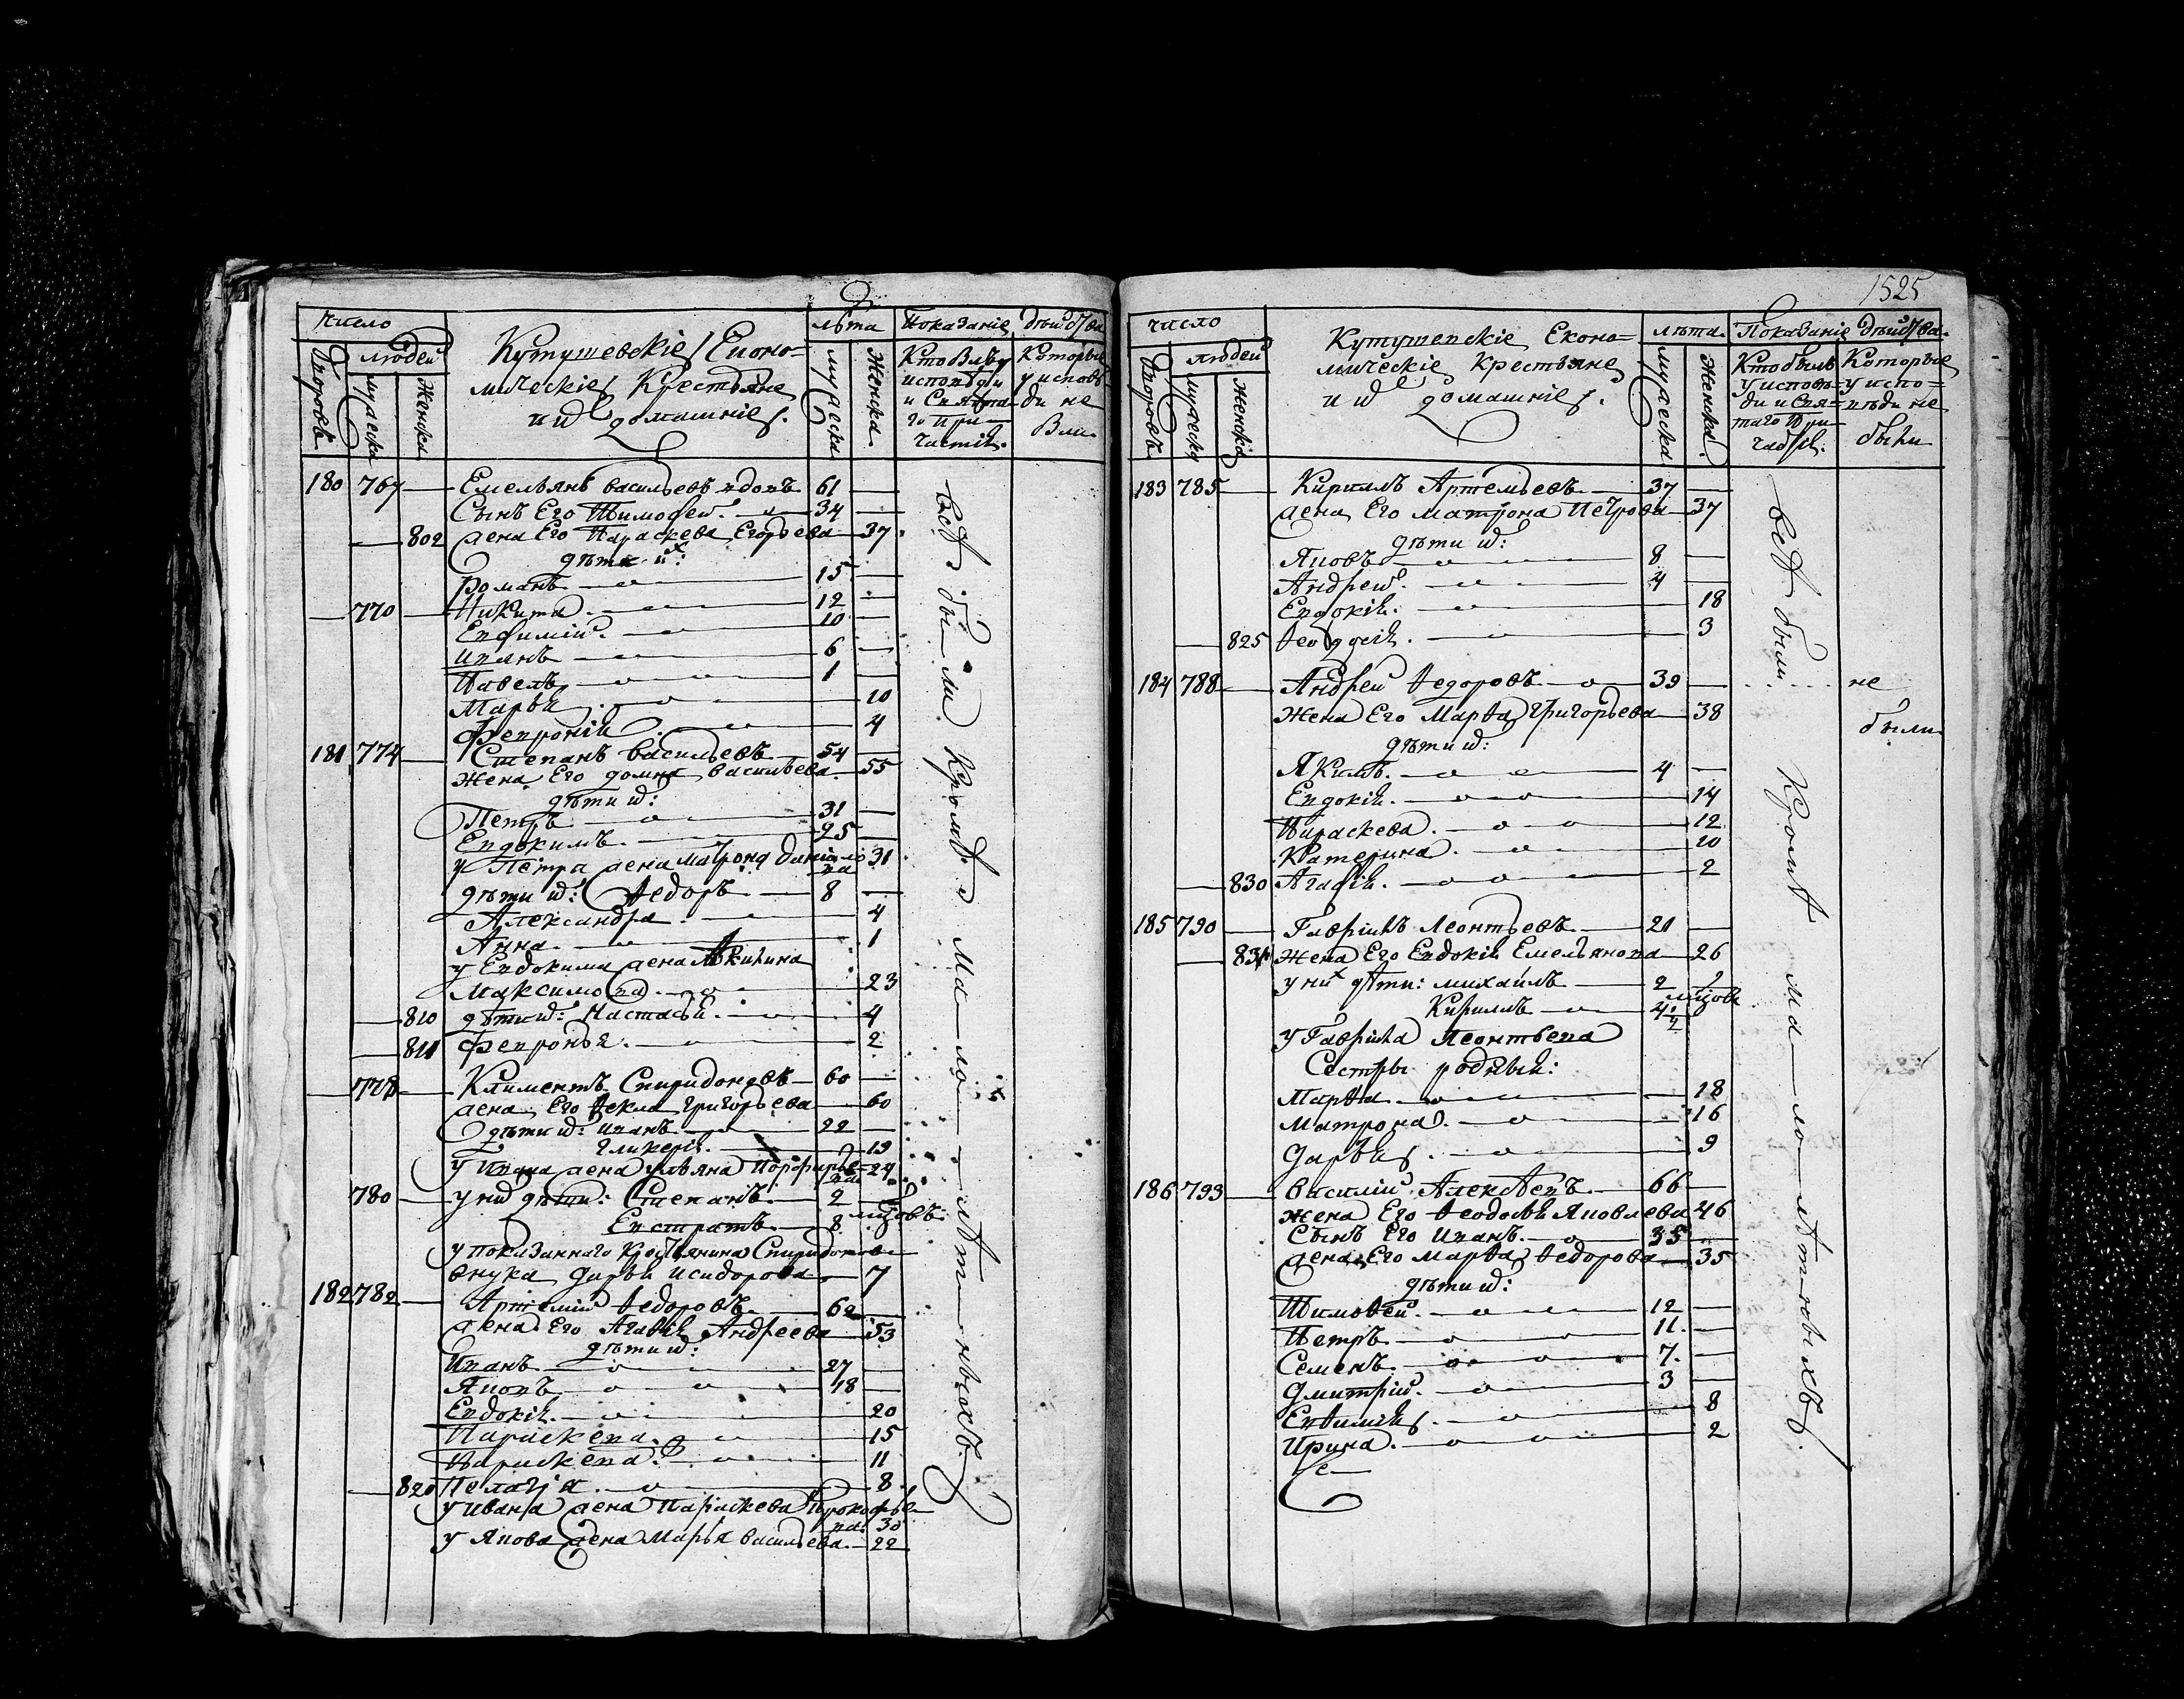 число
людей
дворовъ
мужеска
женска
Кутушевскіе Еконо=
мическіе Крестьяне
и ихъ домашніе.
лѣта
мужеска
женска
Показаніе дѣйства
Кто были у
исповѣди
и Свята-
го при-
частія.
Которые
у исповѣ-
ди не
были
180 767 — Емельянъ васильевъ вдовъ 61 —
Сынъ Его Тимофей 34 —
— 802 жена Его Параскева Егорьева — 37
дѣти ихъ:
Романъ 15 —
— 770 — Никита 12 —
Евфимій 10 —
Иванъ 6 —
Павелъ 1 —
Марья 10
Февронія 4
181 774 — Степанъ васильевъ 54 —
жена Его домна васильева 55
дѣти ихъ:
Петръ 31 —
Евдокимъ 25 —
у Петра жена матрона Данило
ва 31
дѣти ихъ: Ѳедоръ 8 —
Александра 4
Анна 1
у Евдокима жена Акилина
Максимова 23
— 810 дѣти ихъ: Настасья 4
— 811 Февронья 2
— 778 — Климентъ Спиридоновъ 60 —
жена Его Ѳекла григорьева 60
дѣти ихъ: иванъ 22 —
Гликерія 19
у Ивана жена ульяна Порфирье-
ва 24
780 — у нихъ дѣти: Степанъ 2 —
Евстратъ 8 мѣсцовъ
у показаннаго Крестьянина Спиридонова
внука дарья исидорова 7
182 782 — Артемій Ѳедоровъ 62 —
жена Его Агафія Андреева 53
дѣти ихъ:
Иванъ 27 —
Яковъ 18 —
Евдокія 20
Параскева 15
Параскева 11
— 820 Пелагія 8
у ивана жена Параскева Прокофье-
ва 30
у Якова жена Марья васильева 22
всѣ были кромѣ ма-ло-лѣтныхъ
1525
число
людей
дворовъ
мужеска
женска
Кутушевскіе Еконо=
мическіе Крестьяне
и ихъ домашніе.
лѣта
мужеска
женска
Показаніе дѣйства.
Кто былъ
у исповѣ=
ди и Свя=
таго При-
частія.
Которые
у испо=
вѣди не
были
183 785 — Кириллъ Артемьевъ 37 —
жена Его матрона Петрова 37
дѣти ихъ:
Яковъ 8 —
Андрей 4 —
Евдокія 18
— 825 Ѳеодосія 3
184 788 — Андрей Ѳедоровъ 39 — не
жена Его Марѳа григорьева 38 были
дѣти ихъ:
Якимъ 4 —
Евдокія 14
Параскева 12
Катерина 10
— 830 Агафія 2
185 790 — Гавріилъ Леонтьевъ 21 —
— 831 жена Его Евдокія Емельянова 26
у нихъ дѣти: михаилъ 2
Кириллъ 4 мѣсцовъ
у Гавріила Леонтьева
Сестры родныя:
Марѳа 18
Матрона 16
дарья 9
186 793 — василій Алексѣевъ 66 —
жена Его Ѳеодосья Яковлева 46
Сынъ Его Иванъ 35 —
жена Его Марѳа Ѳедорова 35
дѣти ихъ:
Тимоѳей 12 —
Петръ 11 —
Семенъ 7 —
Дмитрій 3 —
Евѳимія 8
Ирина 2
всѣ были кромѣ ма-ло-лѣтныхъ